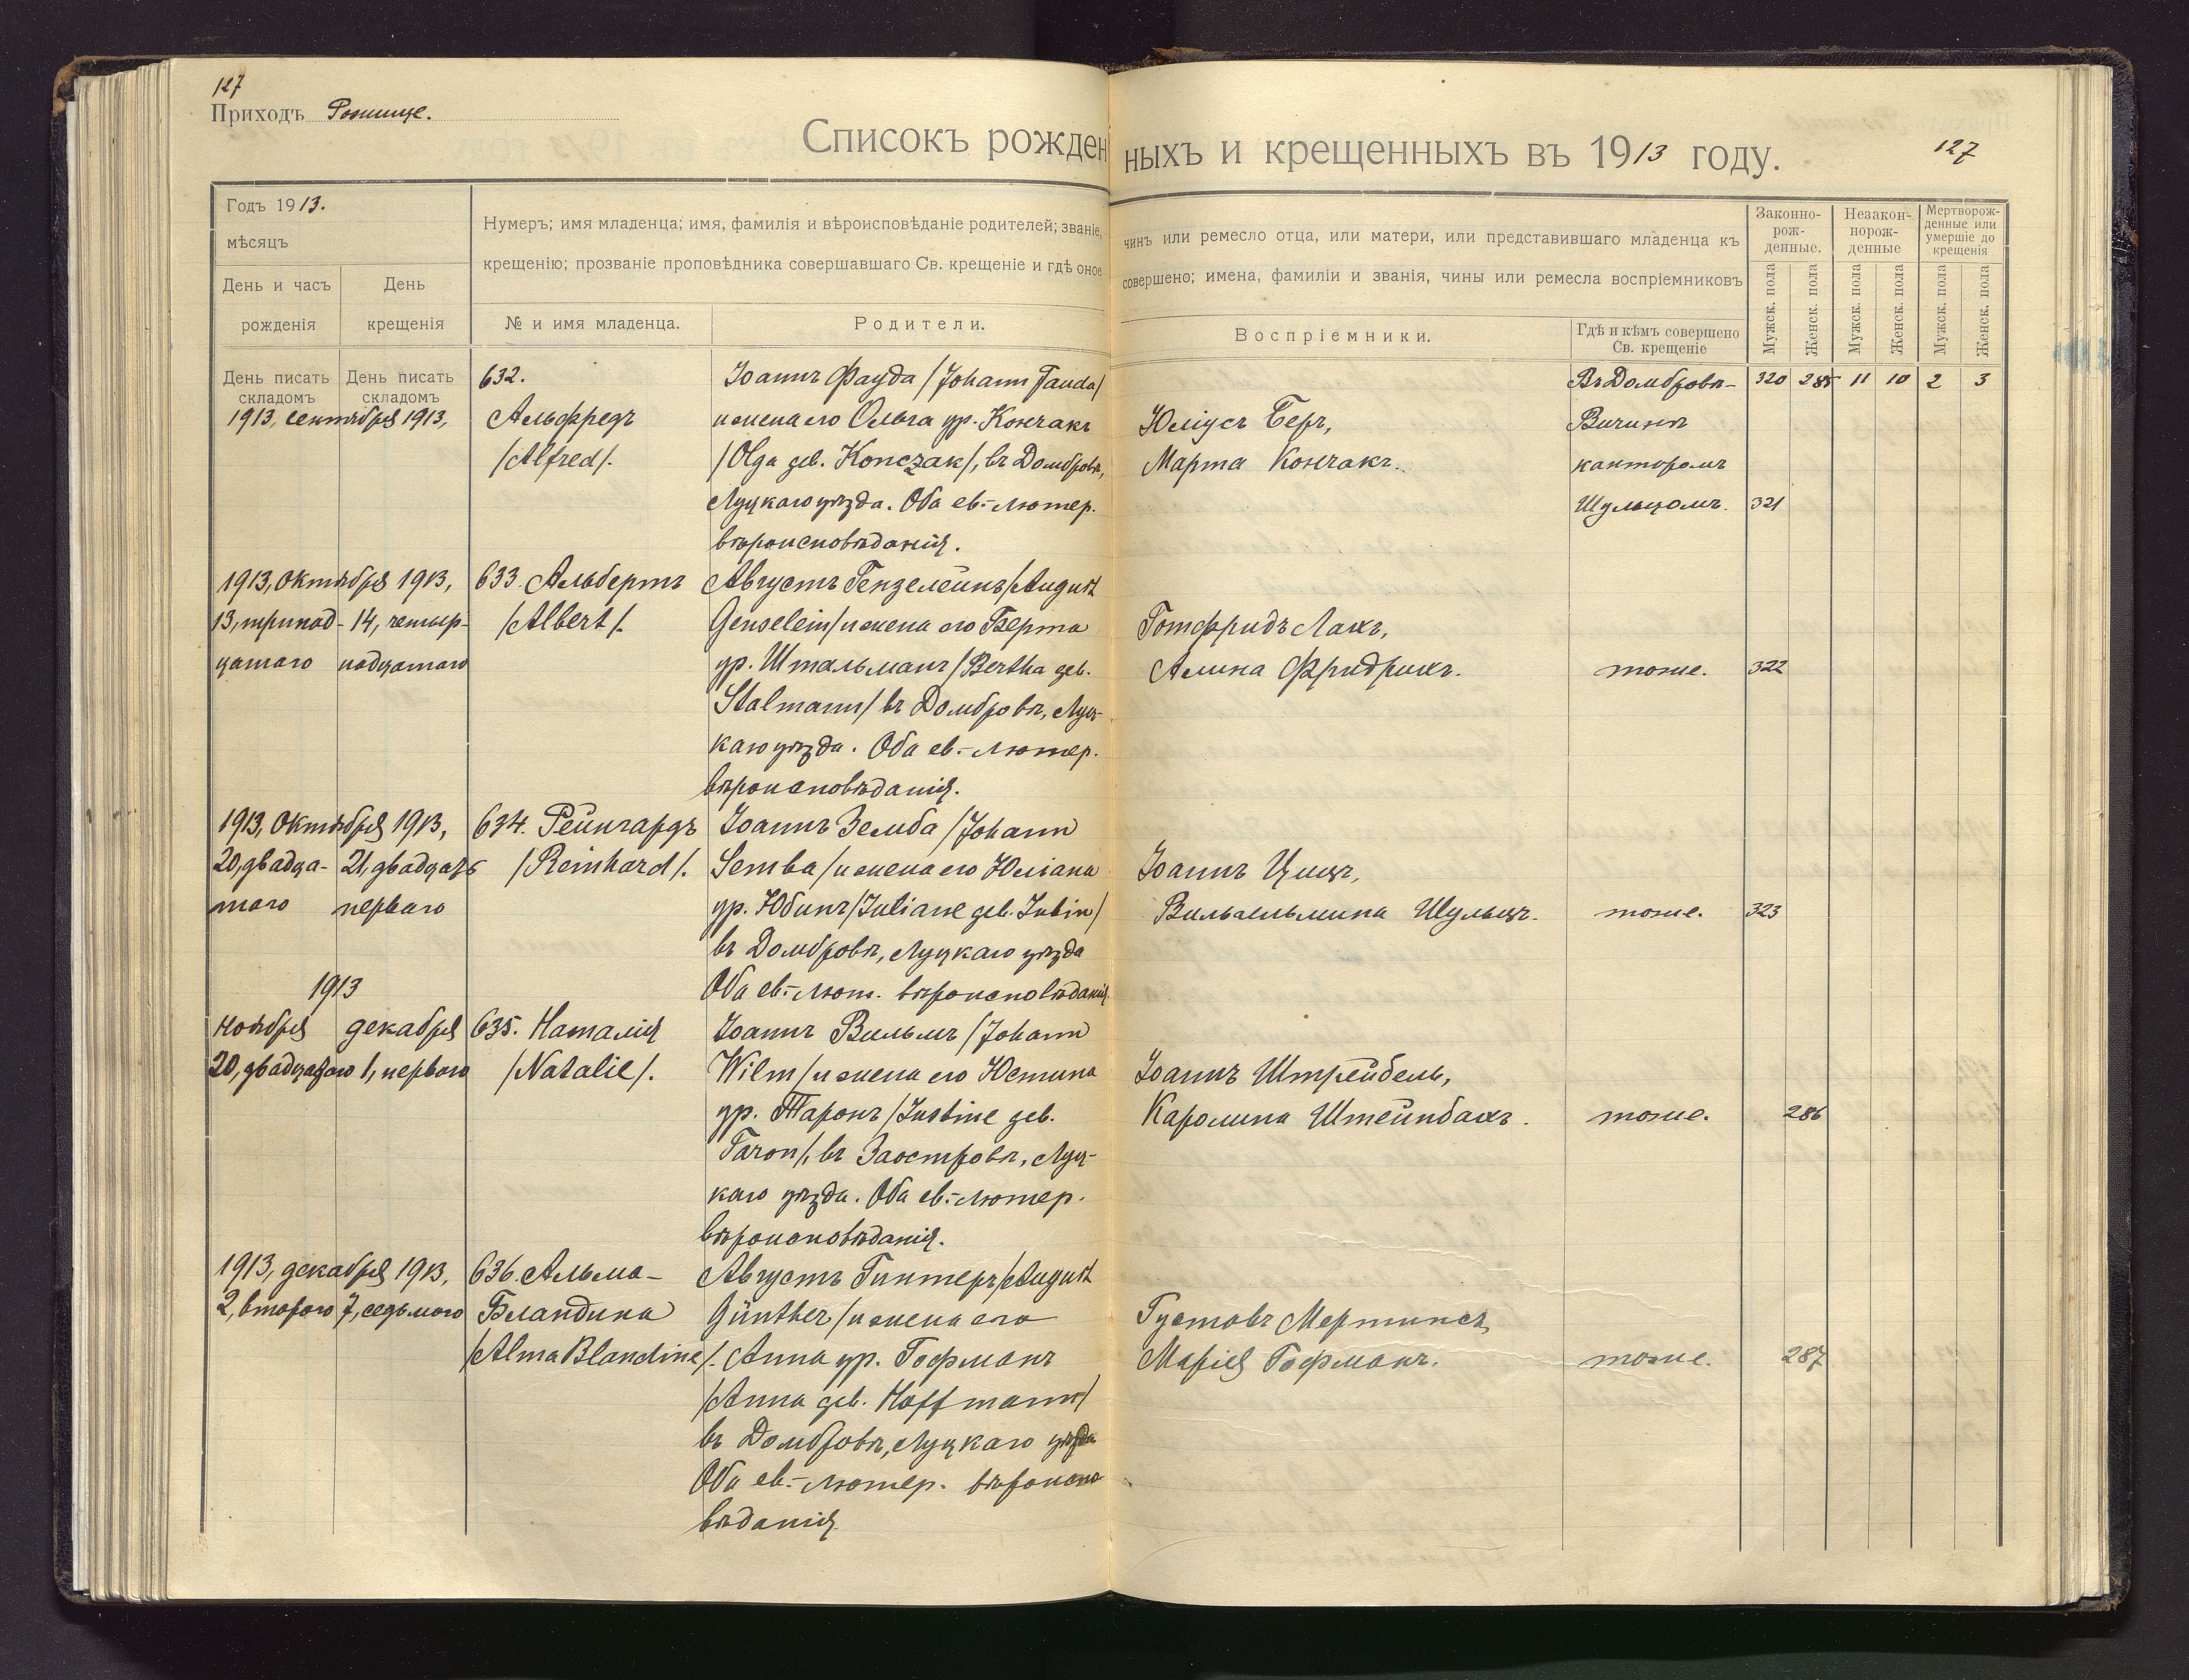 127
Приходъ Рожище.
Списокъ рожденныхъ и крещенныхъ въ 1913 году.
127
Годъ 1913.
мѣсяцъ
День и часъ рожденія
День крещенія
Нумеръ; имя младенца; имя, фамилія и вѣроисповѣданіе родителей; званіе, чинъ или ремесло отца, или матери, или представившаго младенца къ
крещенію; прозваніе проповѣдника совершавшаго Св. крещеніе и гдѣ оное совершено; имена, фамиліи и званія, чины или ремесла воспріемниковъ
№ и имя младенца.
Родители.
Воспріемники.
Гдѣ и кѣмъ совершено
Св. крещеніе
Законно-
рож-
денные.
Незакон-
норож-
денные
Мертворож-
денные или
умершіе до
крещенія
Мужск. пола
Женск. пола
Мужск. пола
Женск. пола
Мужск. пола
Женск. пола
День писать
складомъ
День писать
складомъ
1913, сентября 1913,
632.
Альфредъ
/Alfred/.
Іоаннъ Фауда /Johann Fauda/
и жена его Ольга ур. Кончакъ
/Olga geb. Konczak/, въ Домбровѣ,
Луцкаго уѣзда. Оба ев.-лютер.
вѣроисповѣданія.
Юліусъ Беръ,
Марта Кончакъ.
Въ Домбровѣ-
Вичинѣ
канторомъ
Шульцомъ.
320 285 11 10 2 3
321
1913, Октября 1913,
13, тринад-
цатаго
14, четыр-
надцатаго
633. Альбертъ
/Albert/.
Августъ Гензелейнъ /August
Genselein/ и жена его Берта
ур. Штальманъ /Bertha geb.
Stalmann/ въ Домбровѣ, Луц-
каго уѣзда. Оба ев.-лютер.
вѣроисповѣданія.
Готфридъ Лахъ,
Алина Фридрихъ.
тоже.
322
1913, Октября 1913,
20, двадца-
таго
21, двадцать
перваго
634. Рейнгардъ
/Reinhard/.
Іоаннъ Земба /Johann
Semba/ и жена его Юліана
ур. Юбинъ /Juliane geb. Jubin/
въ Домбровѣ, Луцкаго уѣзда
Оба ев.-лют. вѣроисповѣданія.
Іоаннъ Цицъ,
Вильгельмина Шульцъ.
тоже.
323
1913
ноября
20, двадцатаго
декабря
1, перваго
635. Наталія
/Natalie/.
Іоаннъ Вильмъ /Johann
Wilm/ и жена его Юстина
ур. Таронъ /Justine geb.
Taron/, въ Заостровѣ, Луц-
каго уѣзда. Оба ев.-лютер.
вѣроисповѣданія.
Іоаннъ Штрейбель,
Каролина Штейнбахъ.
тоже.
286
1913, декабря 1913,
2, второго
7, седьмого
636. Альма-
Бландина
/Alma Blandine/.
Августъ Гинтеръ /August
Günther/ и жена его
Анна ур. Гофманъ
/Anna geb. Hoffmann/
въ Домбровѣ, Луцкаго уѣзда
Оба ев.-лютер. вѣроиспо
вѣданія
Густавъ Мертинсъ,
Марія Гофманъ.
тоже.
287